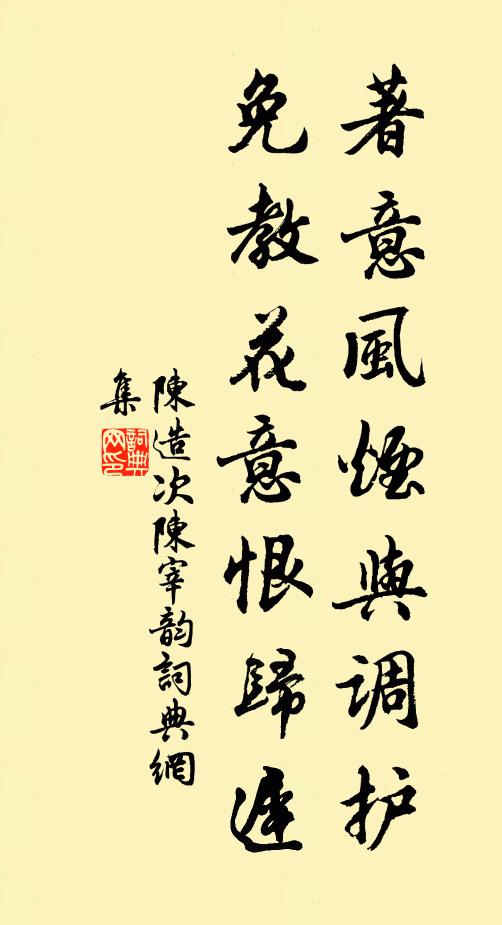 著意風煙與调护
免教花意恨歸遲
陳造次陳宰韵詞典網
集
詞典网印